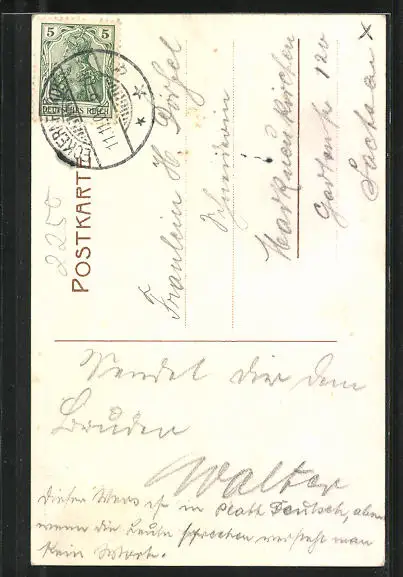 5 5
DEUTSCHES REICH
ECKERNFÖRDE
11.11.
2250
POSTKARTE
Fräulein H. Dörfel
Schneiderin
Markneukirchen
Gartenstr 120
Sachsen
x
Sendet dir dein
Bruder
Walter
Dieser Vers ist in Platt Deutsch, aber
wenn die Leute sprechen versteht man
kein Wort.